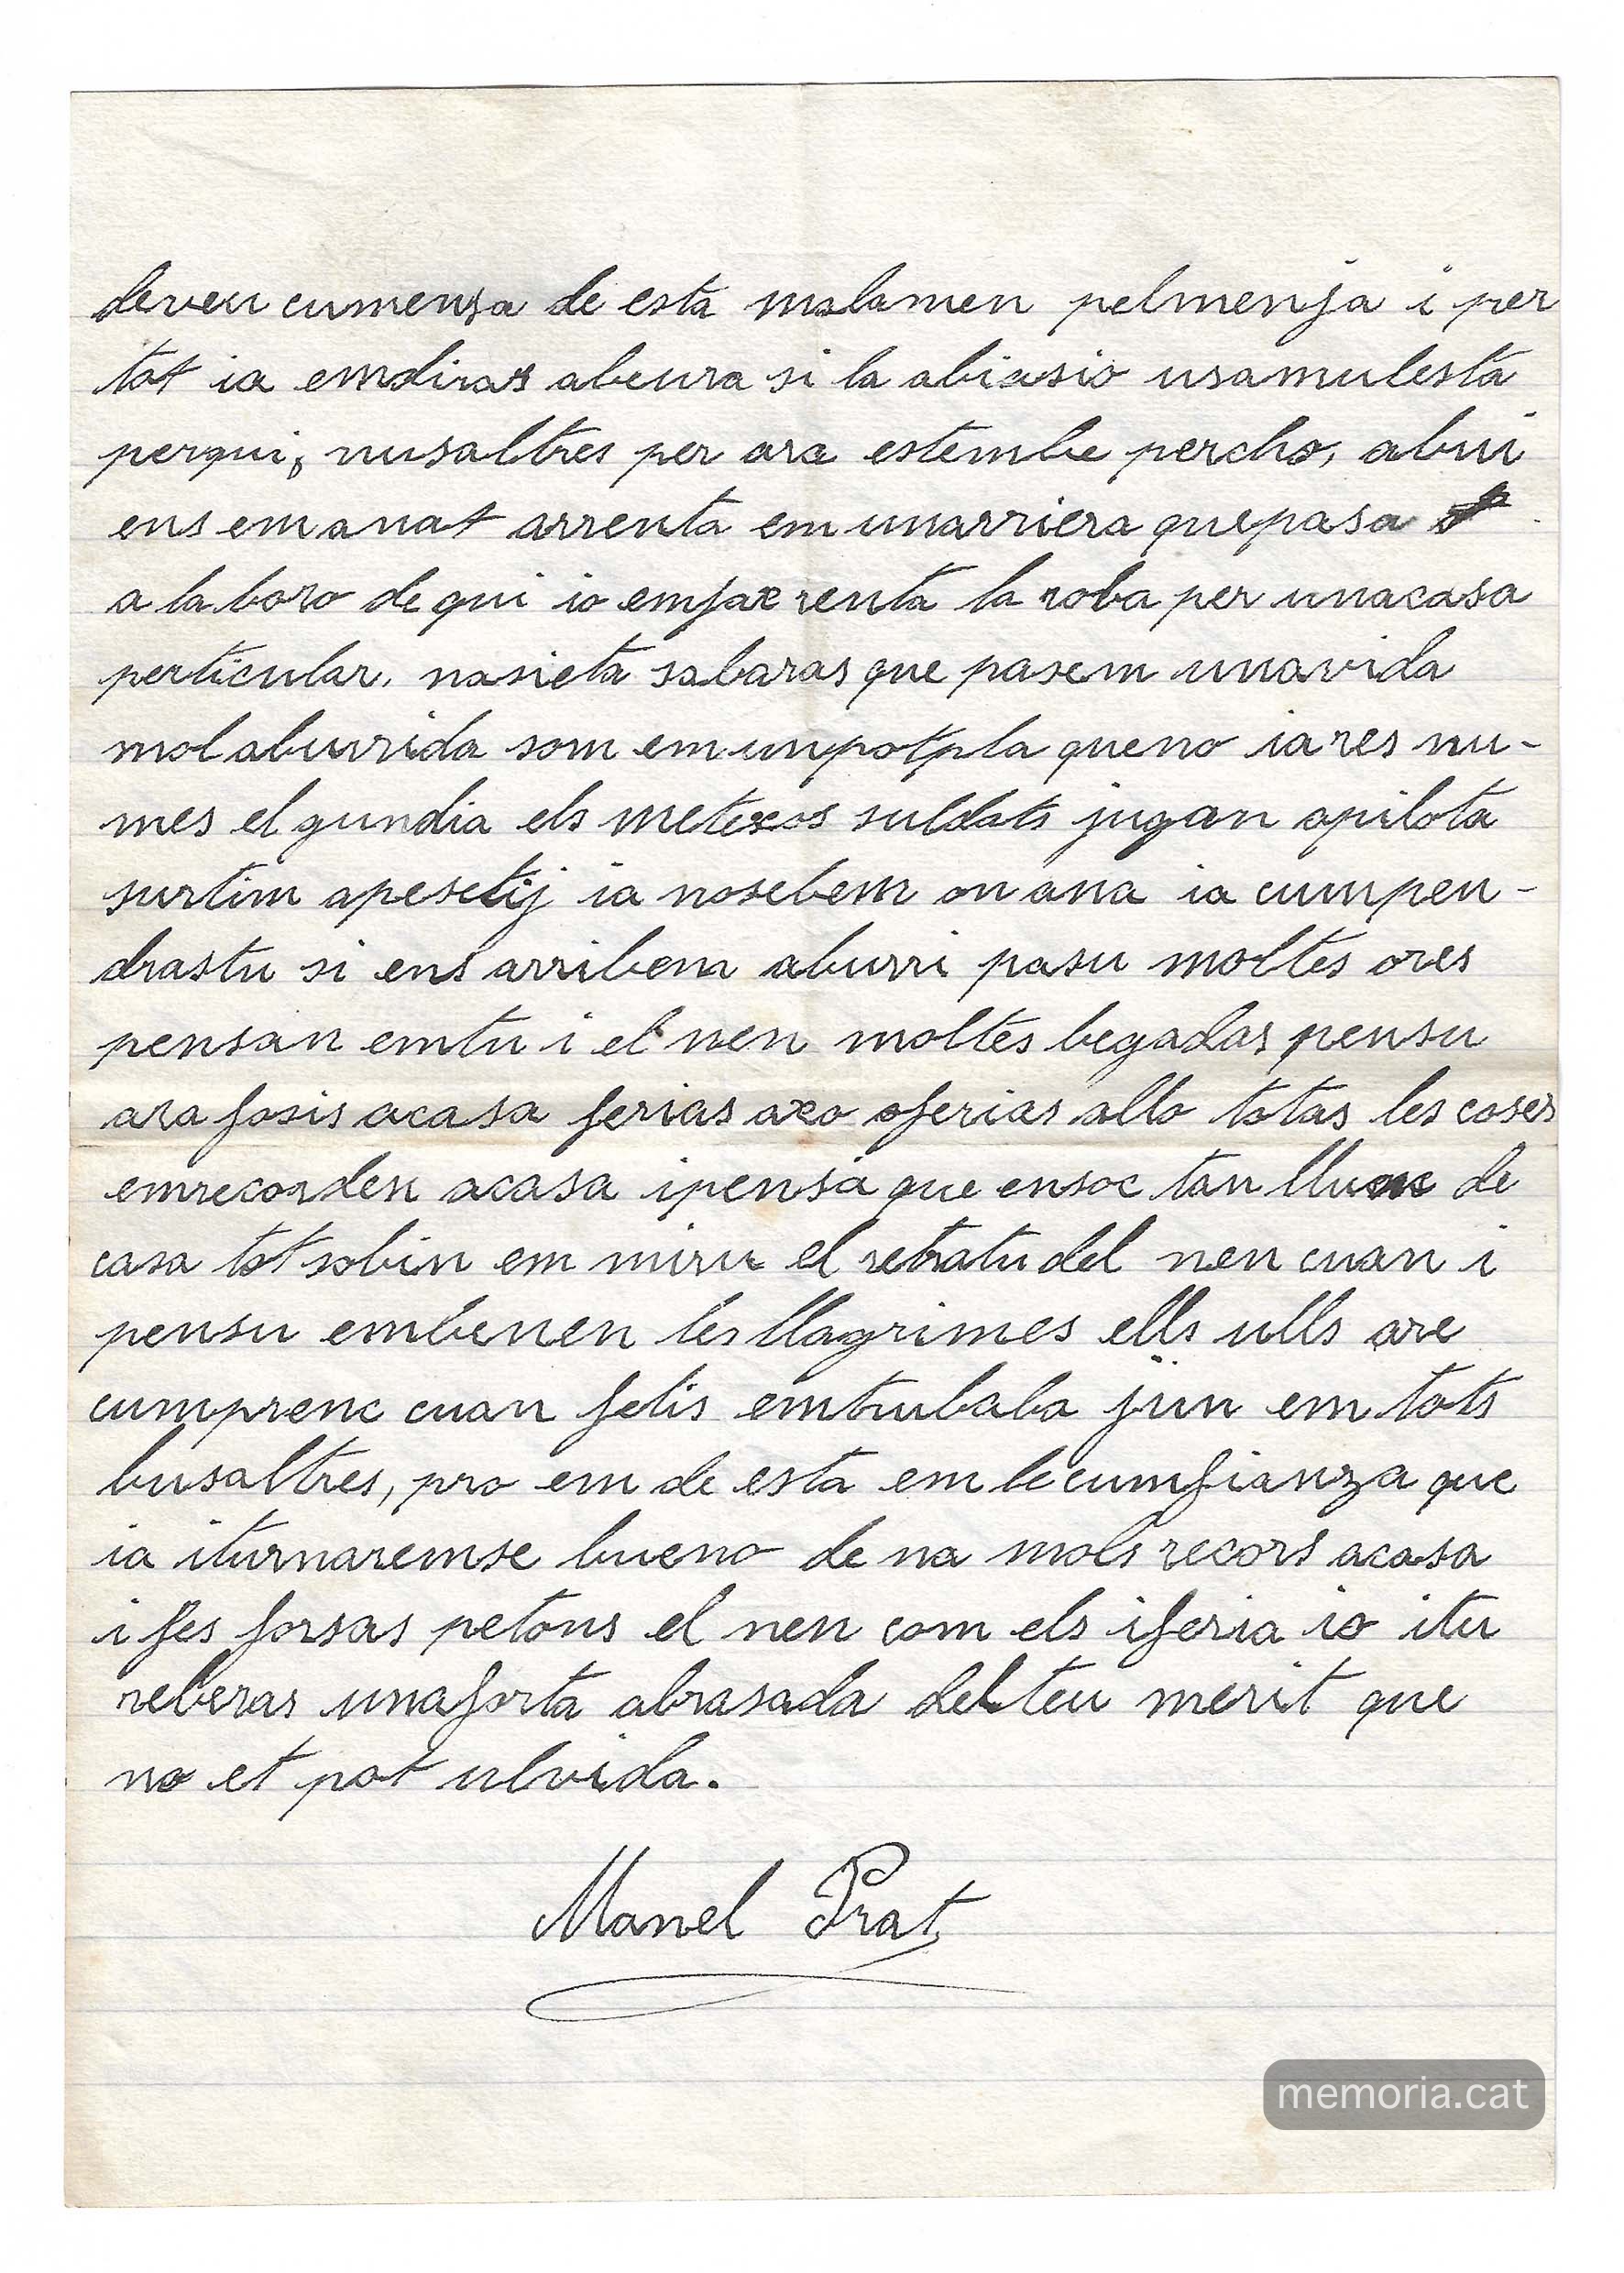 deveu cumensa de esta malamen pelmenja i per
tot ia emdiras abeura si la abiasio usamulesta
perqui, nusaltres per ara estembe percho, abui
ens em anat arrenta em unarriera quepasa
a la boro de qui io emfax renta la roba per unacasa
perticular, nasieta sabaras que pasem unavida
mol aburrida som em unpotpla queno ia res nu-
mes el gundia els metexos suldats jugan apilota
surtim apesetij ia nosebem on ana ia cumpen-
drastu si ens arribem aburri pasu moltes ores
pensan emtu i el nen moltes begadas pensu
ara fosis acasa ferias axo oferias allo totas les coses
emrecorden acasa ipensa que ensoc tan lluen de
casa tot sobin em miru el retratu del nen cuan i
pensu embenen les llagrimes ells ulls are
cumprenc cuan felis emtrubaba jun em tots
busaltres, pro em de esta em le cumfianza que
ia iturnaremse bueno de na mols recors acasa
i fes forsas petons el nen com els iferia io itu
reberas unaforta abrasada del teu merit que
no et pot ulvida.
Manel Prat
memoria.cat